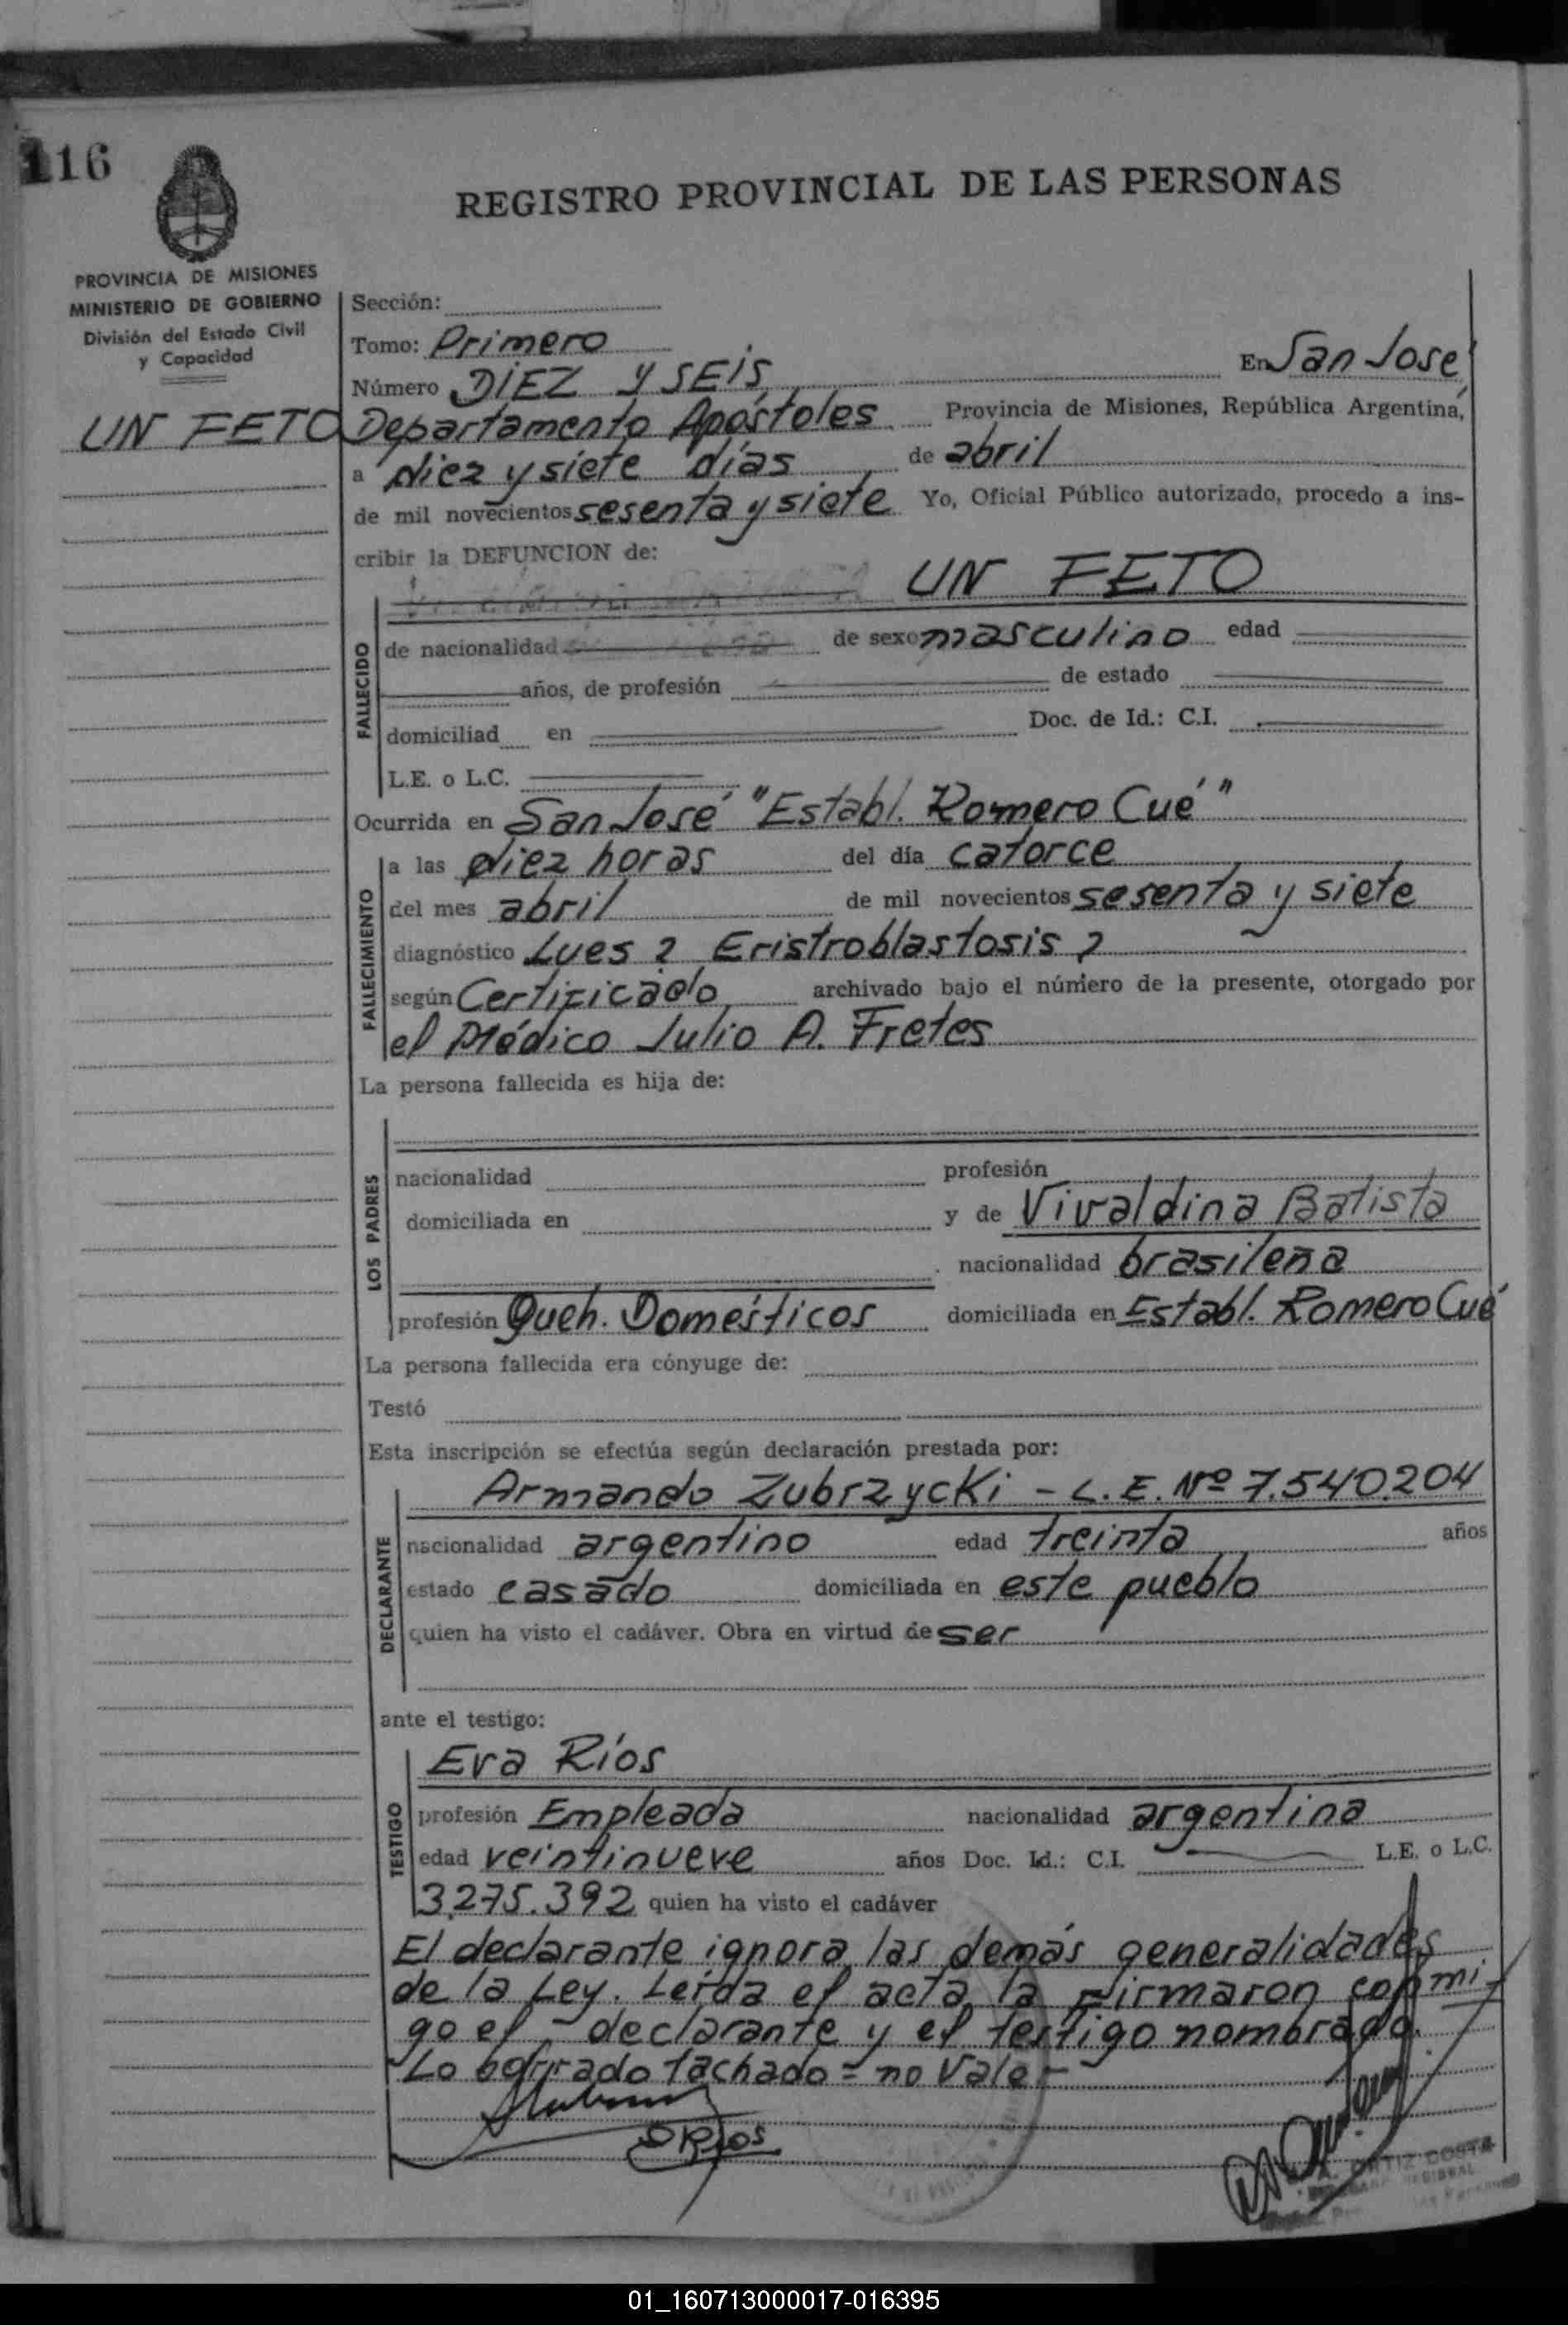 116
REGISTRO PROVINCIAL DE LAS PERSONAS
PROVINCIA DE MISIONES
MINISTERIO DE GOBIERNO
División del Estado Civil
y Capacidad
UN FETO
Sección:
Tomo: Primero
Número DIEZ Y SEIS, En San José,
Departamento Apóstoles Provincia de Misiones, República Argentina,
a diez y siete días de abril
de mil novecientos sesenta y siete Yo, Oficial Público autorizado, procedo a ins-
cribir la DEFUNCION de:
UN FETO
FALLECIDO
de nacionalidad de sexo masculino edad
años, de profesión de estado
domiciliad en Doc. de Id.: C.I.
L.E. o L.C.
Ocurrida en San José "Establ. Romero Cué"
FALLECIMIENTO
a las diez horas del día catorce
del mes abril de mil novecientos sesenta y siete
diagnóstico Lues ? Eristroblastosis ?
según Certificado archivado bajo el número de la presente, otorgado por
el Médico Julio A. Fretes
La persona fallecida es hija de:
LOS PADRES
nacionalidad profesión
domiciliada en y de Vivaldina Batista
nacionalidad brasileña
profesión Queh. Domésticos domiciliada en Establ. Romero Cué
La persona fallecida era cónyuge de:
Testó
Esta inscripción se efectúa según declaración prestada por:
Armando Zubrzycki - L.E. Nº 7.540.204
DECLARANTE
nacionalidad argentino edad treinta años
estado casado domiciliada en este pueblo
quien ha visto el cadáver. Obra en virtud de ser
ante el testigo:
Eva Ríos
TESTIGO
profesión Empleada nacionalidad argentina
edad veintinueve años Doc. Id.: C.I. L.E. o L.C.
3.275.392 quien ha visto el cadáver
El declarante ignora las demás generalidades
de la Ley. Leída el acta, la firmaron conmi-
go el declarante y el testigo nombrado.
Lo borrado tachado = no Vale -
Ríos
ORTIZ COSTA
01_160713000017-016395